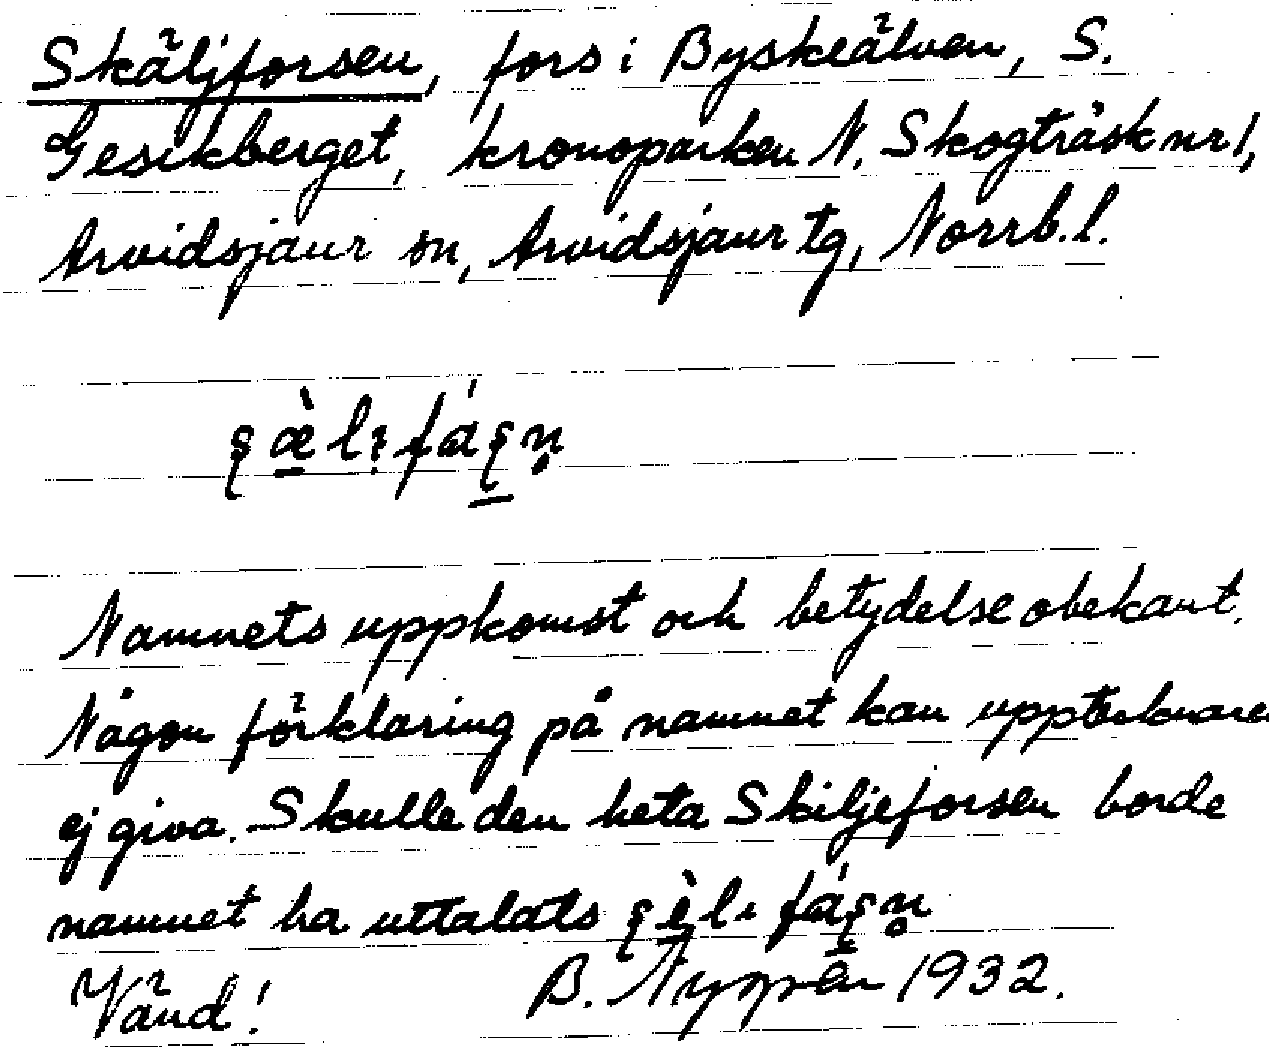 Skäljforsen, fors i Byskeälven, S.
Gesikberget, kronoparken N. Skogträsk nr 1,
Arvidsjaur sn, Arvidsjaur tg, Norrb. l.
Namnets uppkomst och betydelse obekant.
Någon förklaring på namnet kan upptecknaren
ej giva. Skulle den heta Skiljeforsen borde
namnet ha uttalats
Vänd! B. Nygren 1932.